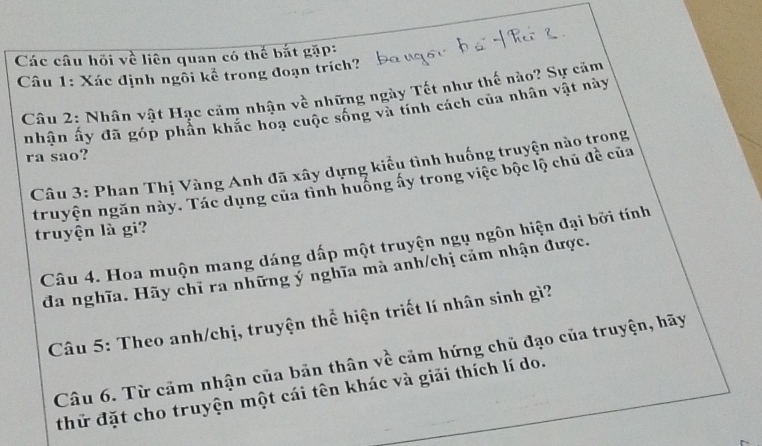 Các câu hỏi về liên quan có thể bắt gặp:
Câu 1: Xác định ngôi kể trong đoạn trích? thứ 3.
Câu 2: Nhân vật Hạc cảm nhận về những ngày Tết như thế nào? Sự cảm
nhận ấy đã góp phần khắc hoạ cuộc sống và tính cách của nhân vật này
ra sao?
Câu 3: Phan Thị Vàng Anh đã xây dựng kiểu tình huống truyện nào trong
truyện ngăn này. Tác dụng của tình huống ấy trong việc bộc lộ chủ đề của
truyện là gì?
Câu 4. Hoa muộn mang dáng dấp một truyện ngụ ngôn hiện đại bởi tính
đa nghĩa. Hãy chỉ ra những ý nghĩa mà anh/chị cảm nhận được.
Câu 5: Theo anh/chị, truyện thể hiện triết lí nhân sinh gì?
Câu 6. Từ cảm nhận của bản thân về cảm hứng chủ đạo của truyện, hãy
thử đặt cho truyện một cái tên khác và giải thích lí do.